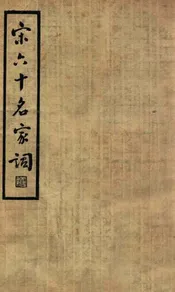 宋六十名家詞